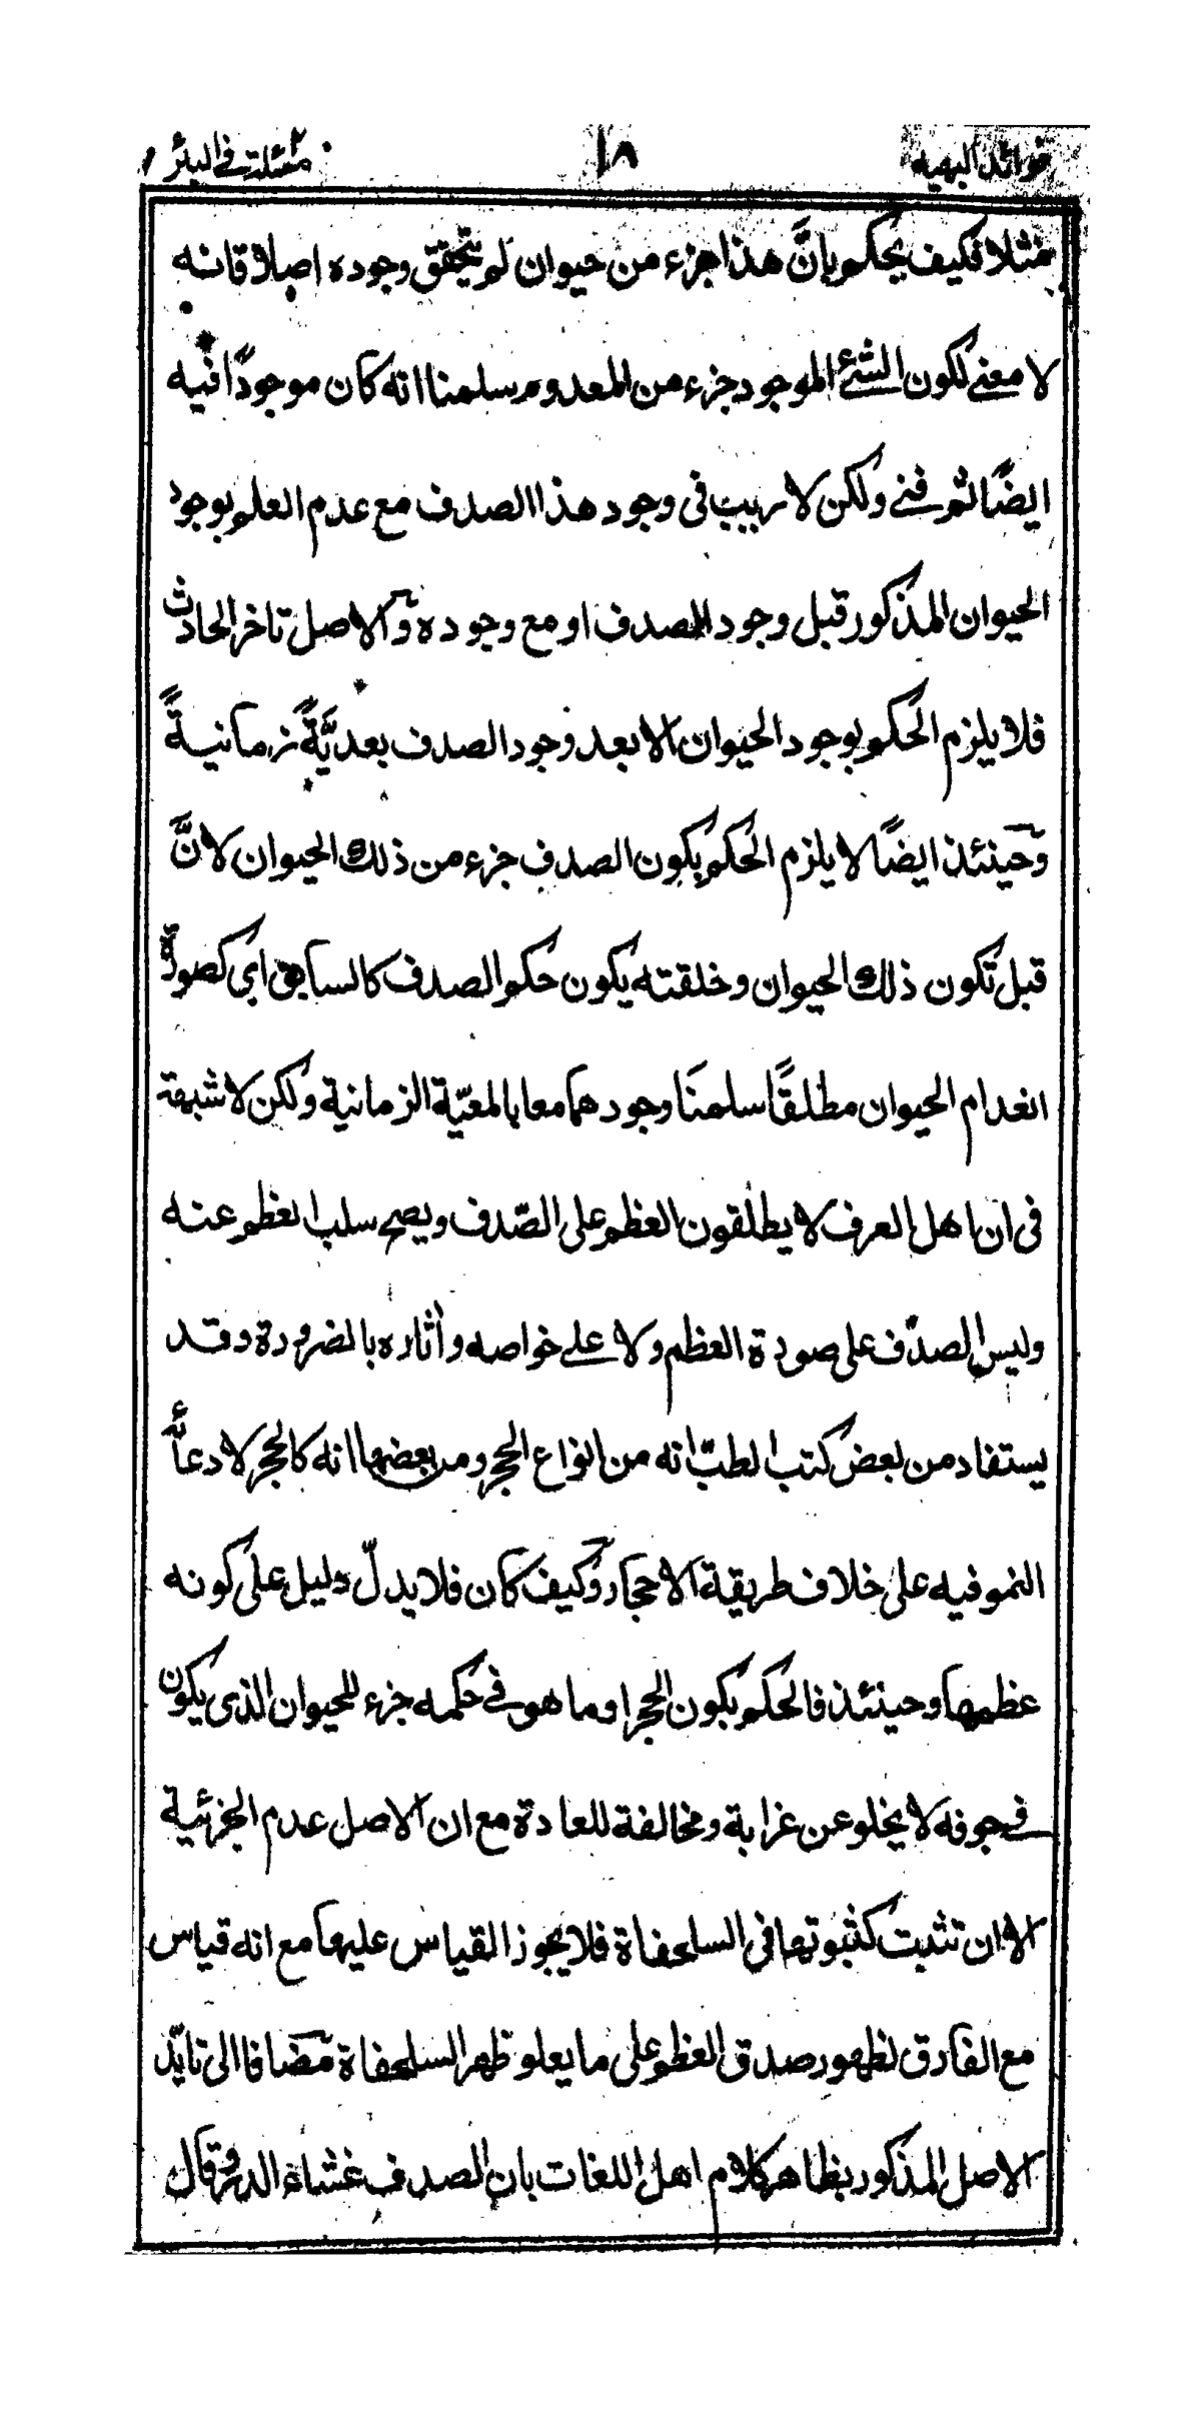 فوائد البهيه ١٨ مسئلة في البئر
مثلا فكيف يحكم بانَّ هذا جزء من حيوان لم يتحقق وجوده اصلا فانه
لا معنے لكون الشئ الموجود جزء من المعدوم سلمنا انه كان موجودًا فيه
ايضًا ثم فنے ولكن لا ريب فى وجود هذا الصدف مع عدم العلم بوجود
الحيوان المذكور قبل وجود الصدف او مع وجوده وٓالاصل تاخر الحادث
فلا يلزم الحكم بوجود الحيوان الا بعد وجود الصدف بعديَّةً زمانيةً
وٓحينئذ ايضًا لا يلزم الحكم بكون الصدف جزء من ذلك الحيوان لانَّ
قبل تكون ذلك الحيوان وخلقته يكون حكم الصدف كالسابق اى كصورة
انعدام الحيوان مطلقًا سلمنَا وجودهما معا بالمعيّة الزمانية ولكن لا شبهة
فى ان اهل العرف لا يطلقون العظم على الصّدف ويصح سلب العظم عنه
وليس الصدف على صورة العظم ولا علے خواصه واٰثاره بالضرورة وقد
يستفاد من بعض كتب الطبّ انه من انواع الحجر ومن بعضها انه كالحجر لادعائه
النمو فيه على خلاف طريقة الاحجار وٓكيف كان فلا يدلّ دليل على كونه
عظمها وحينئذ فالحكم بكون الحجر او ما هو فے حكمه جزء للحيوان الذى يكون
فے جوفه لا يخلو عن غرابة ومخالفة للعادة مع ان الاصل عدم الجزئية
الا ان تثبت كثبوتها فى السلحفاة فلا يجوز القياس عليها مع انه قياس
مع الفارق لظهور صدق العظم على ما يعلو ظهر السلحفاة مٓضافا الى تايّد
الاصل المذكور بظاهر كلام اهل اللغات بان الصدف غشاء الدر وقال